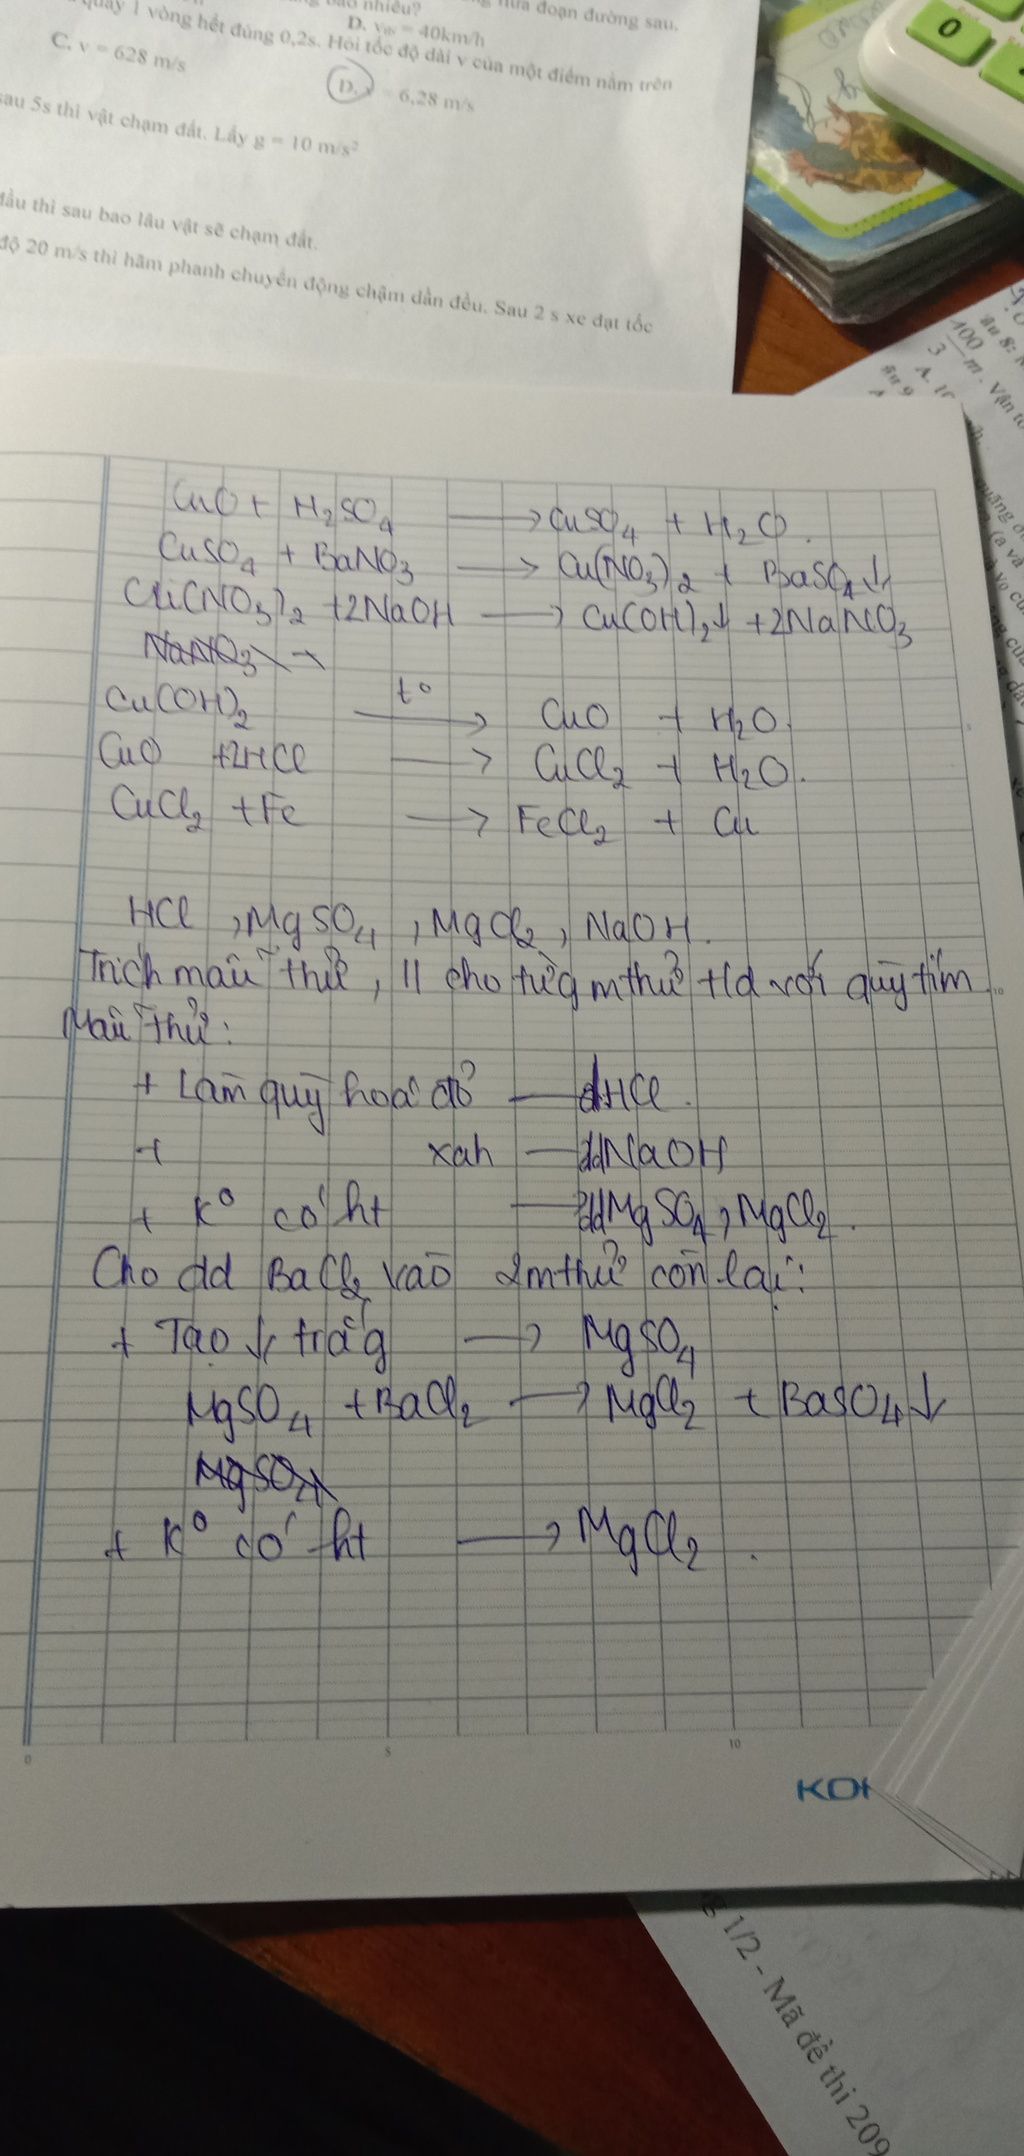 bao nhiêu?
nửa đoạn đường sau.
D. = 40km/h
quay 1 vòng hết đúng 0,2s. Hỏi tốc độ dài v của một điểm nằm trên
C. v = 628 m/s
D. v = 6,28 m/s
sau 5s thì vật chạm đất. Lấy g = 10 m/s²
đầu thì sau bao lâu vật sẽ chạm đất.
độ 20 m/s thì hãm phanh chuyển động chậm dần đều. Sau 2 s xe đạt tốc
0
100
3
m. Vận
CuO + H₂SO₄ → CuSO₄ + H₂O.
CuSO₄ + BaNO₃ → Cu(NO₃)₂ + BaSO₄↓
Cu(NO₃)₂ +2NaOH → Cu(OH)₂↓ +2NaNO₃
NaNO₃
Cu(OH)₂ t⁰→ CuO + H₂O.
CuO +2HCl → CuCl₂ + H₂O.
CuCl₂ +Fe → FeCl₂ + Cu
HCl , MgSO₄ , MgCl₂, NaOH.
Trích mẫu thử, // cho từg mthử t/d với quỳ tím
Mẫu thử:
+ Làm quỳ hoá đỏ — dd HCl.
+ xah — dd NaOH
+ k⁰ có ht — dd MgSO₄, MgCl₂.
Cho dd BaCl₂ vào 2mthử còn lại:
+ Tạo ↓ trắg → MgSO₄
MgSO₄ +BaCl₂ → MgCl₂ + BaSO₄↓
MgSO₄
+ k⁰ có ht → MgCl₂.
0 5 10
KOK
1/2 - Mã đề thi 209